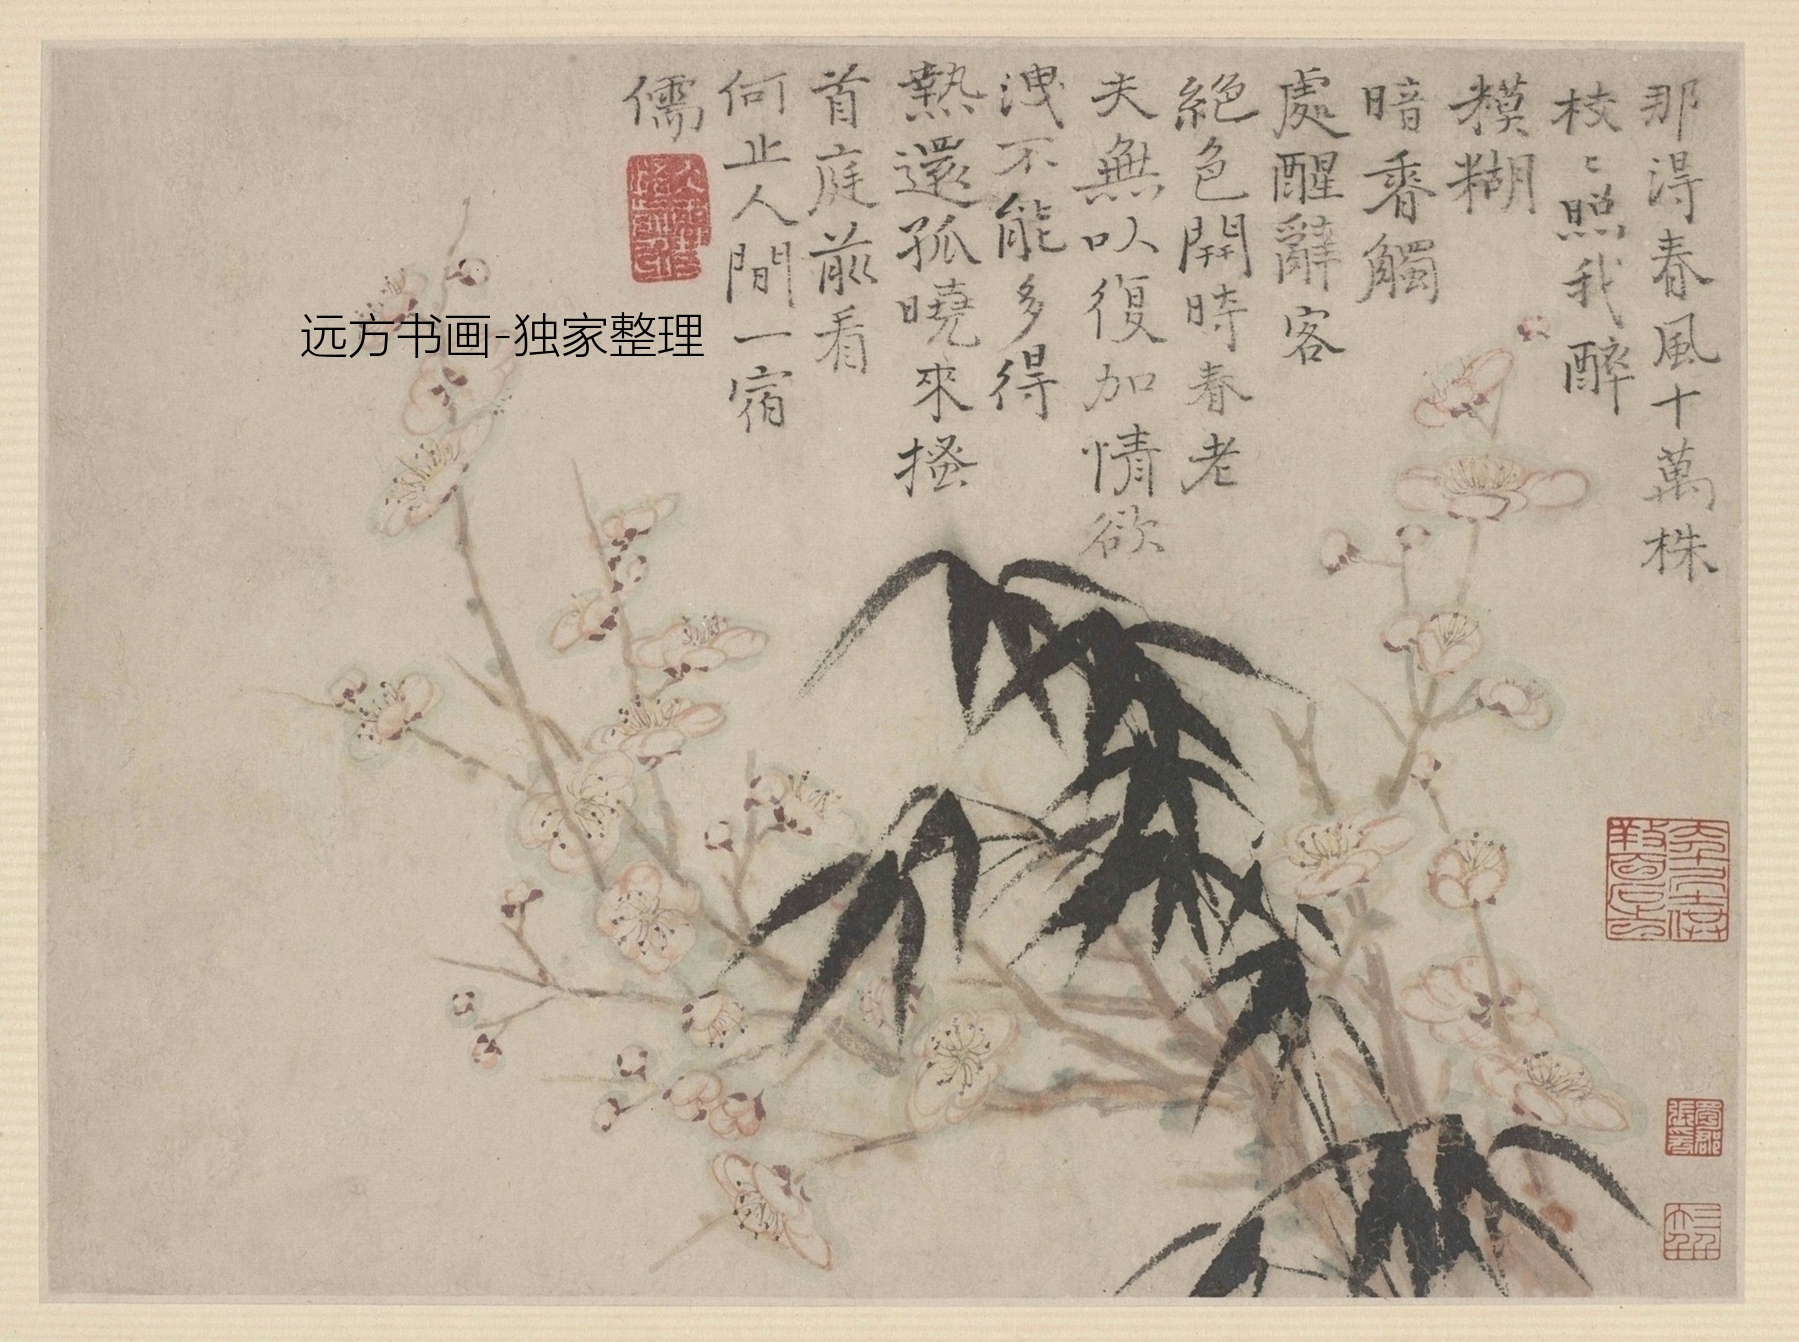 那得春風十萬株
枝〻照我醉
糢糊
暗香觸
處醒辭客
絕色開時春老
夫無以復加情欲
洩不能多得
熱還孤曉來搔
首庭前看
何止人間一宿
儒
远方书画-独家整理